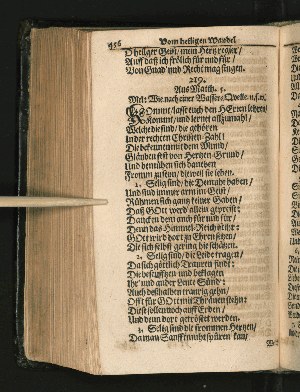 456 Vom heiligen Wandel
O heilger Geist/ mein Hertz regier/
Auff daß ich frölich für und für/
Von Gnad und Recht mag singen.
219.
Aus Matth. 5.
Mel: Wie nach einer Wasser-Quelle. u.s.w.
KOmmt/ lasst euch den HErren lehren/
Kommt/ und lernet allzumahl/
Welche die sind/ die gehören
In der rechten Christen-Zahl!
Die bekennen mit dem Mund/
Gläuben fest von Hertzen-Grund/
Und bemühen sich daneben
Fromm zu seyn/ dieweil sie leben.
1. Selig sind/ die Demuht haben/
Und sind immer arm im Geist/
Rühmen sich gantz keiner Gaben/
Daß GOtt werd allein gepreist:
Dancken dem auch für und für/
Denn das Himmel-Reich ist ihr:
GOtt wird dort zu Ehren setzen/
Die sich selbst gering hie schätzen.
2. Selig sind/ die Leide tragen/
Da sich göttlich Trauren find:
Die beseufftzen und beklagen
Ihr und ander Leute Sünd:
Auch deßhalben traurig gehn/
Offt für GOtt mit Thränen stehn:
Diese sollen noch auff Erden/
Und denn dort getröstet werden.
3. Selig sind die frommen Hertzen/
Da man Sanfftmuht spüren kan/